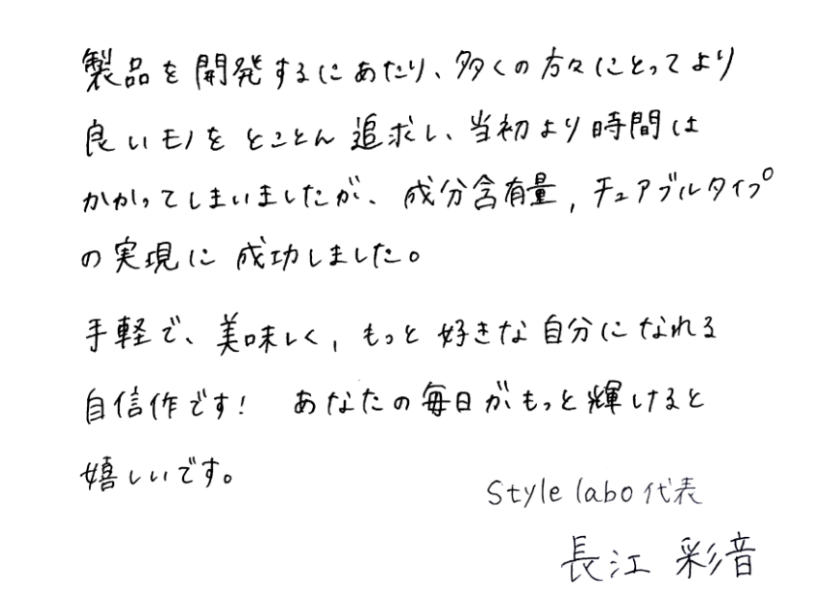 製品を開発するにあたり、多くの方々にとってより
良いモノをとことん追求し、当初より時間は
かかってしまいましたが、成分含有量,チュアブルタイプ
の実現に成功しました。
手軽で、美味しく,もっと好きな自分になれる
自信作です! あなたの毎日がもっと輝けると
嬉しいです。
Style labo 代表
長江 彩音